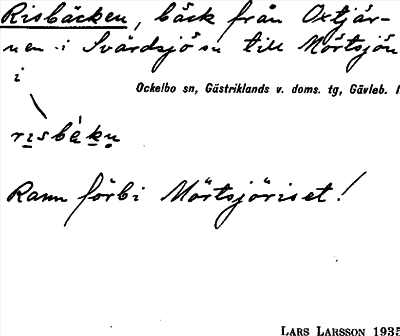 Risbäcken, bäck från Oxtjär-
nen i Svärdsjö sn till Mörtsjön
i
Ockelbo sn, Gästriklands v. doms. tg, Gävleb. l
risbäkn
Rann förbi Mörtsjöriset!
LARS LARSSON 1935